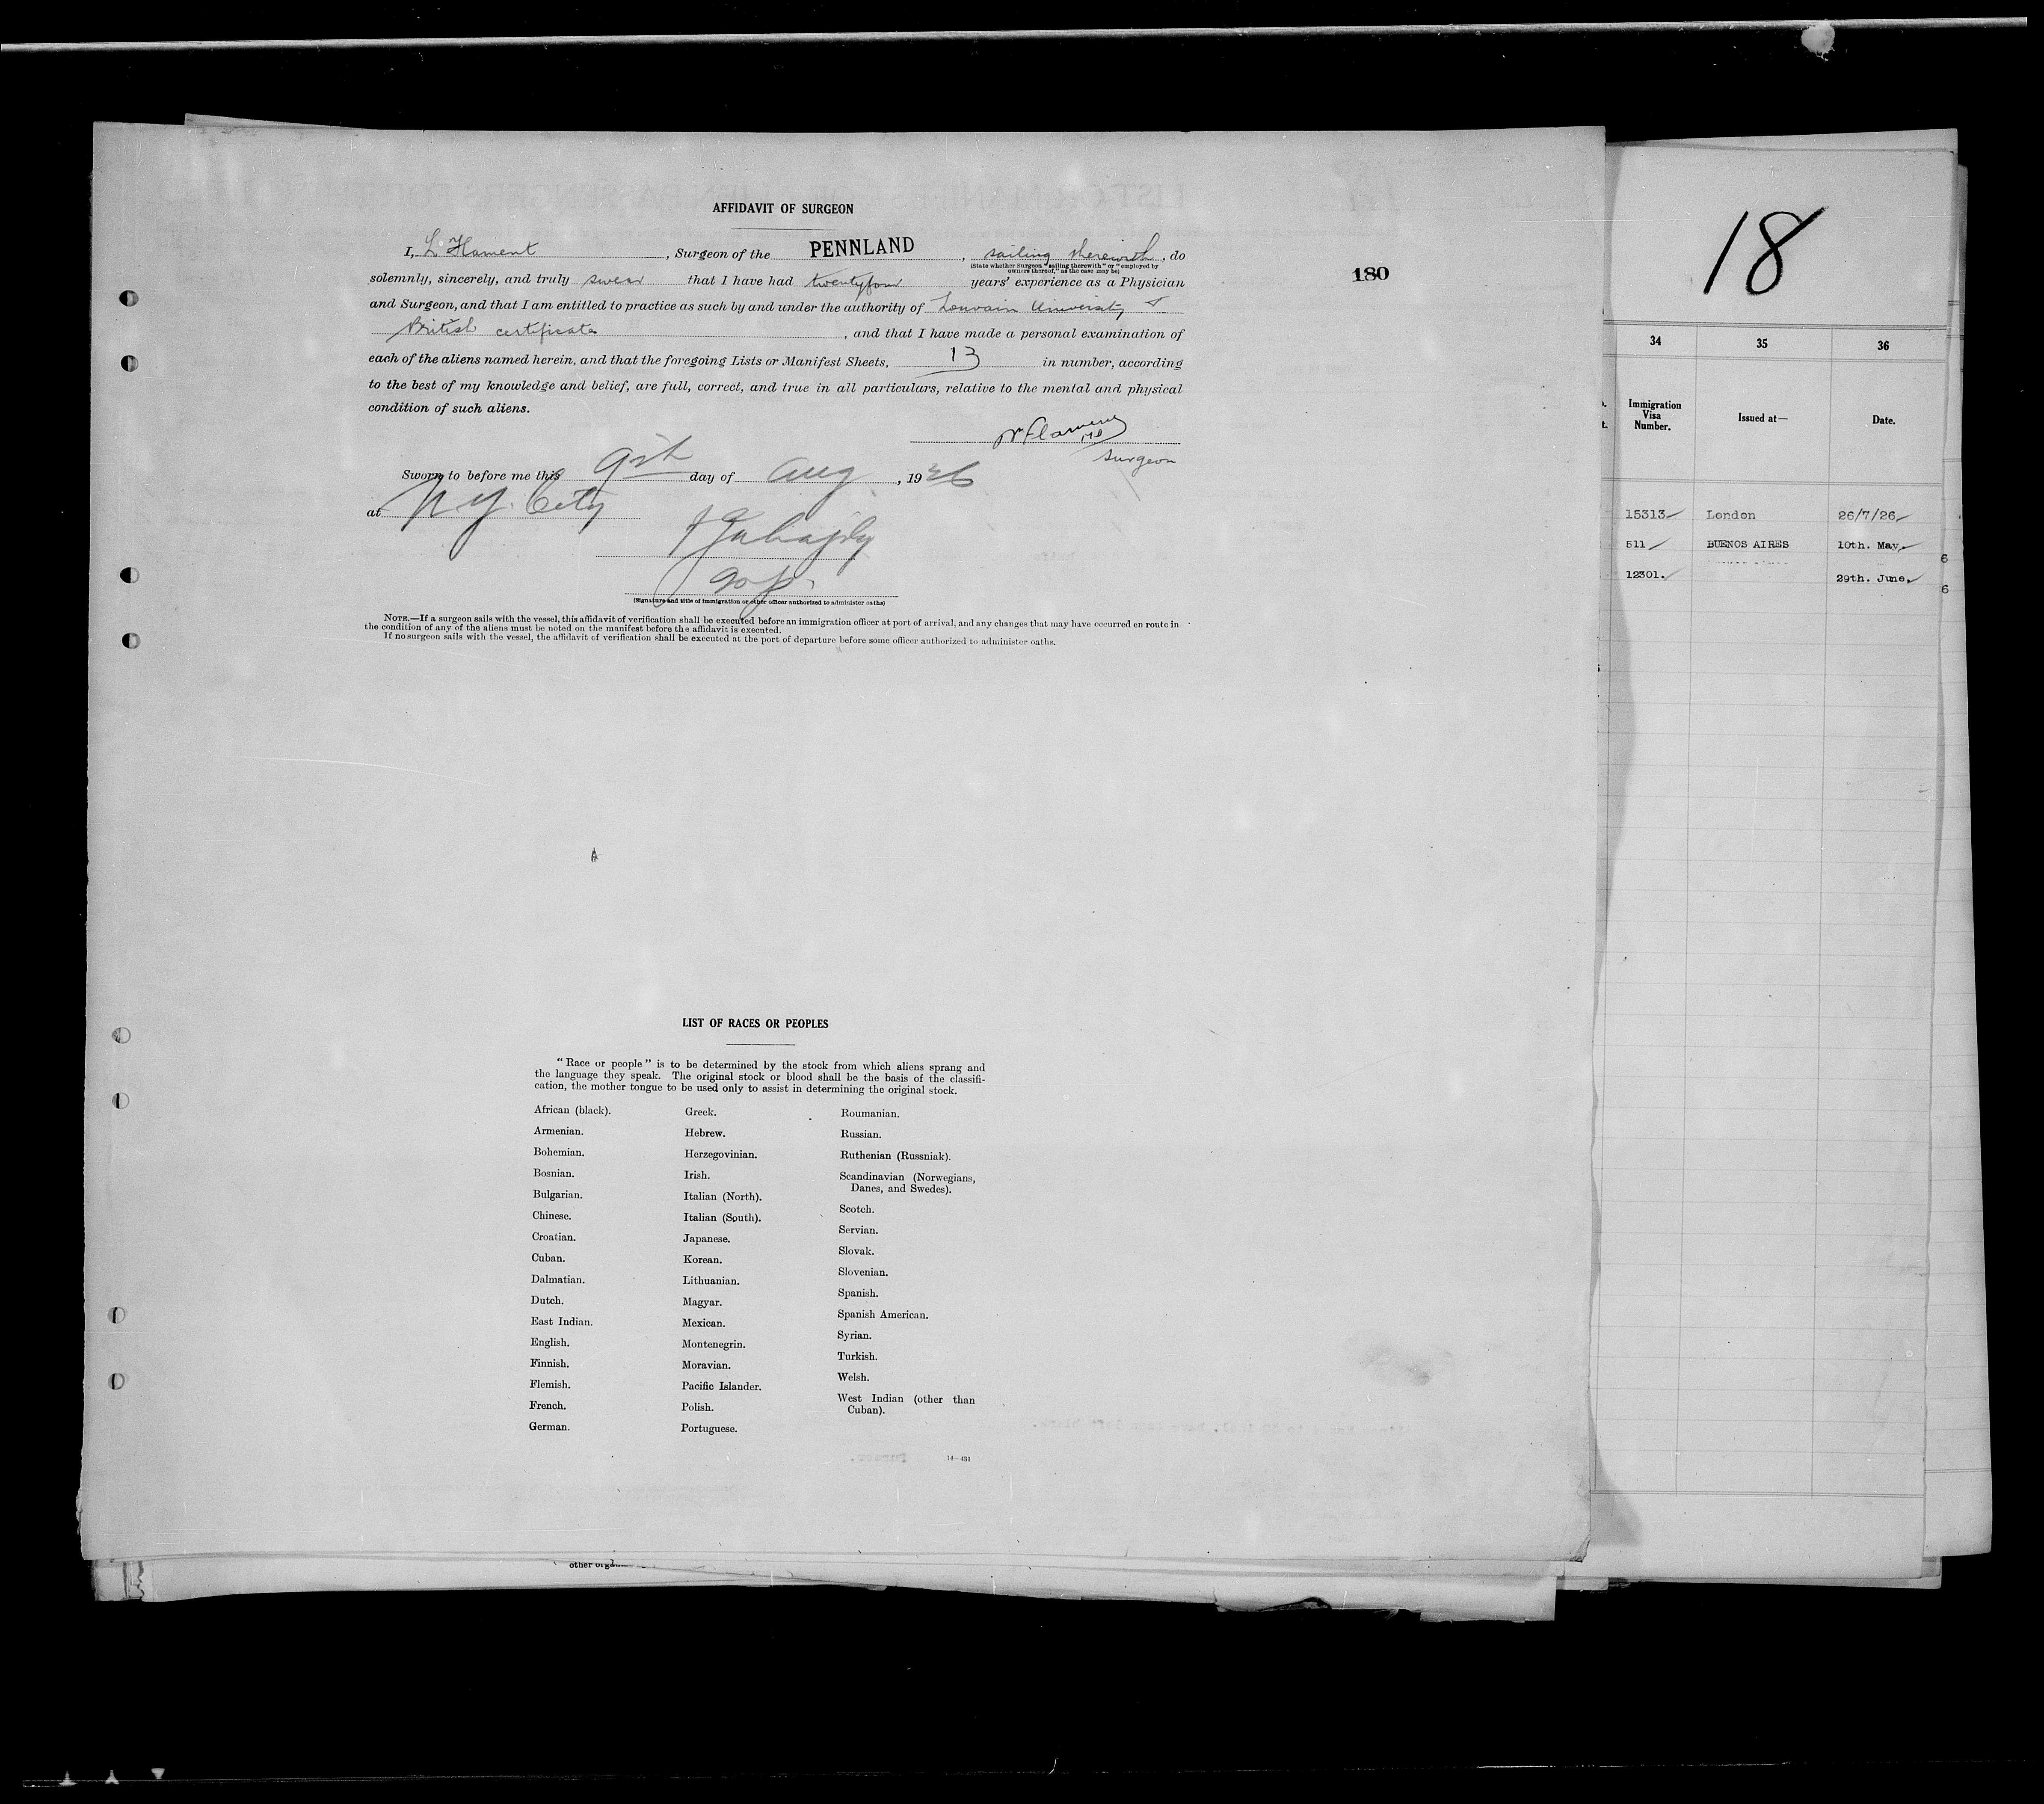 AFFIDAVIT OF SURGEON
I, L Flament, Surgeon of the PENNLAND, sailing therewith, do
(State whether Surgeon "sailing therewith" or "employed by
owners thereof," as the case may be)
solemnly, sincerely, and truly swear that I have had twentyfour years' experience as a Physician
and Surgeon, and that I am entitled to practice as such by and under the authority of Louvain University &
British certificate, and that I have made a personal examination of
each of the aliens named herein, and that the foregoing Lists or Manifest Sheets, 13 in number, according
to the best of my knowledge and belief, are full, correct, and true in all particulars, relative to the mental and physical
condition of such aliens.
Dr Flament MD
Surgeon
Sworn to before me this 9th day of Aug, 1926
at N Y. City
(Signature and title of immigration or other officer authorized to administer oaths)
NOTE.—If a surgeon sails with the vessel, this affidavit of verification shall be executed before an immigration officer at port of arrival, and any changes that may have occurred en route in
the condition of any of the aliens must be noted on the manifest before the affidavit is executed.
If no surgeon sails with the vessel, the affidavit of verification shall be executed at the port of departure before some officer authorized to administer oaths.
LIST OF RACES OR PEOPLES
"Race or people" is to be determined by the stock from which aliens sprang and
the language they speak. The original stock or blood shall be the basis of the classifi-
cation, the mother tongue to be used only to assist in determining the original stock.
African (black).
Armenian.
Bohemian.
Bosnian.
Bulgarian.
Chinese.
Croatian.
Cuban.
Dalmatian.
Dutch.
East Indian.
English.
Finnish.
Flemish.
French.
German.
Greek.
Hebrew.
Herzegovinian.
Irish.
Italian (North).
Italian (South).
Japanese.
Korean.
Lithuanian.
Magyar.
Mexican.
Montenegrin.
Moravian.
Pacific Islander.
Polish.
Portuguese.
Roumanian.
Russian.
Ruthenian (Russniak).
Scandinavian (Norwegians,
Danes, and Swedes).
Scotch.
Servian.
Slovak.
Slovenian.
Spanish.
Spanish American.
Syrian.
Turkish.
Welsh.
West Indian (other than
Cuban).
14—431
other
180
18
34 35 36
Immigration
Visa
Number.
Issued at—
Date.
15313 London 26/7/26
511 BUENOS AIRES 10th. May.
12301. 29th. June.
6
6